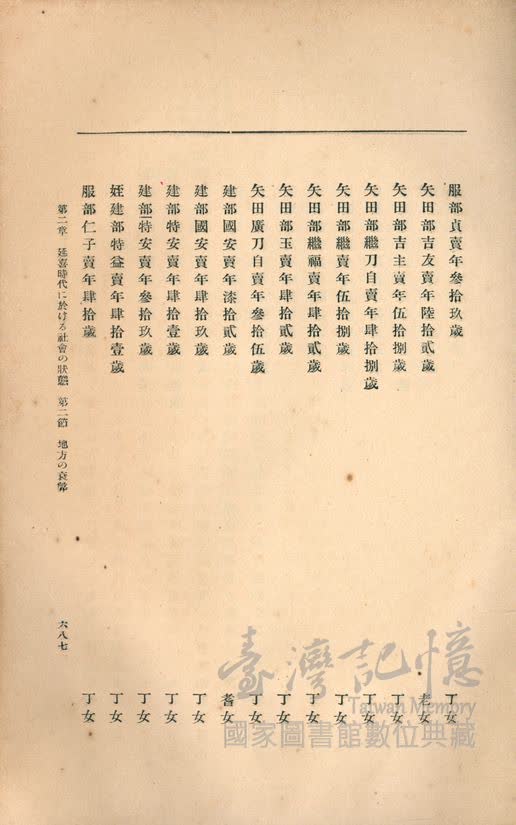 服部貞賣年參拾玖歲 丁女
矢田部吉友賣年陸拾貳歲 老女
矢田部吉主賣年伍拾捌歲 丁女
矢田部繼刀自賣年肆拾捌歲 丁女
矢田部繼賣年伍拾捌歲 丁女
矢田部繼福賣年肆拾貳歲 丁女
矢田部玉賣年肆拾貳歲 丁女
矢田廣刀自賣年參拾伍歲 丁女
建部國安賣年漆拾貳歲 耆女
建部國安賣年肆拾玖歲 丁女
建部特安賣年肆拾壹歲 丁女
建部特安賣年參拾玖歲 丁女
姪建部特益賣年肆拾壹歲 丁女
服部仁子賣年肆拾歲 丁女
第二章 延喜時代に於ける社會の狀態 第二節 地方の衰弊
六八七
臺灣記憶
Taiwan Memory
國家圖書館數位典藏